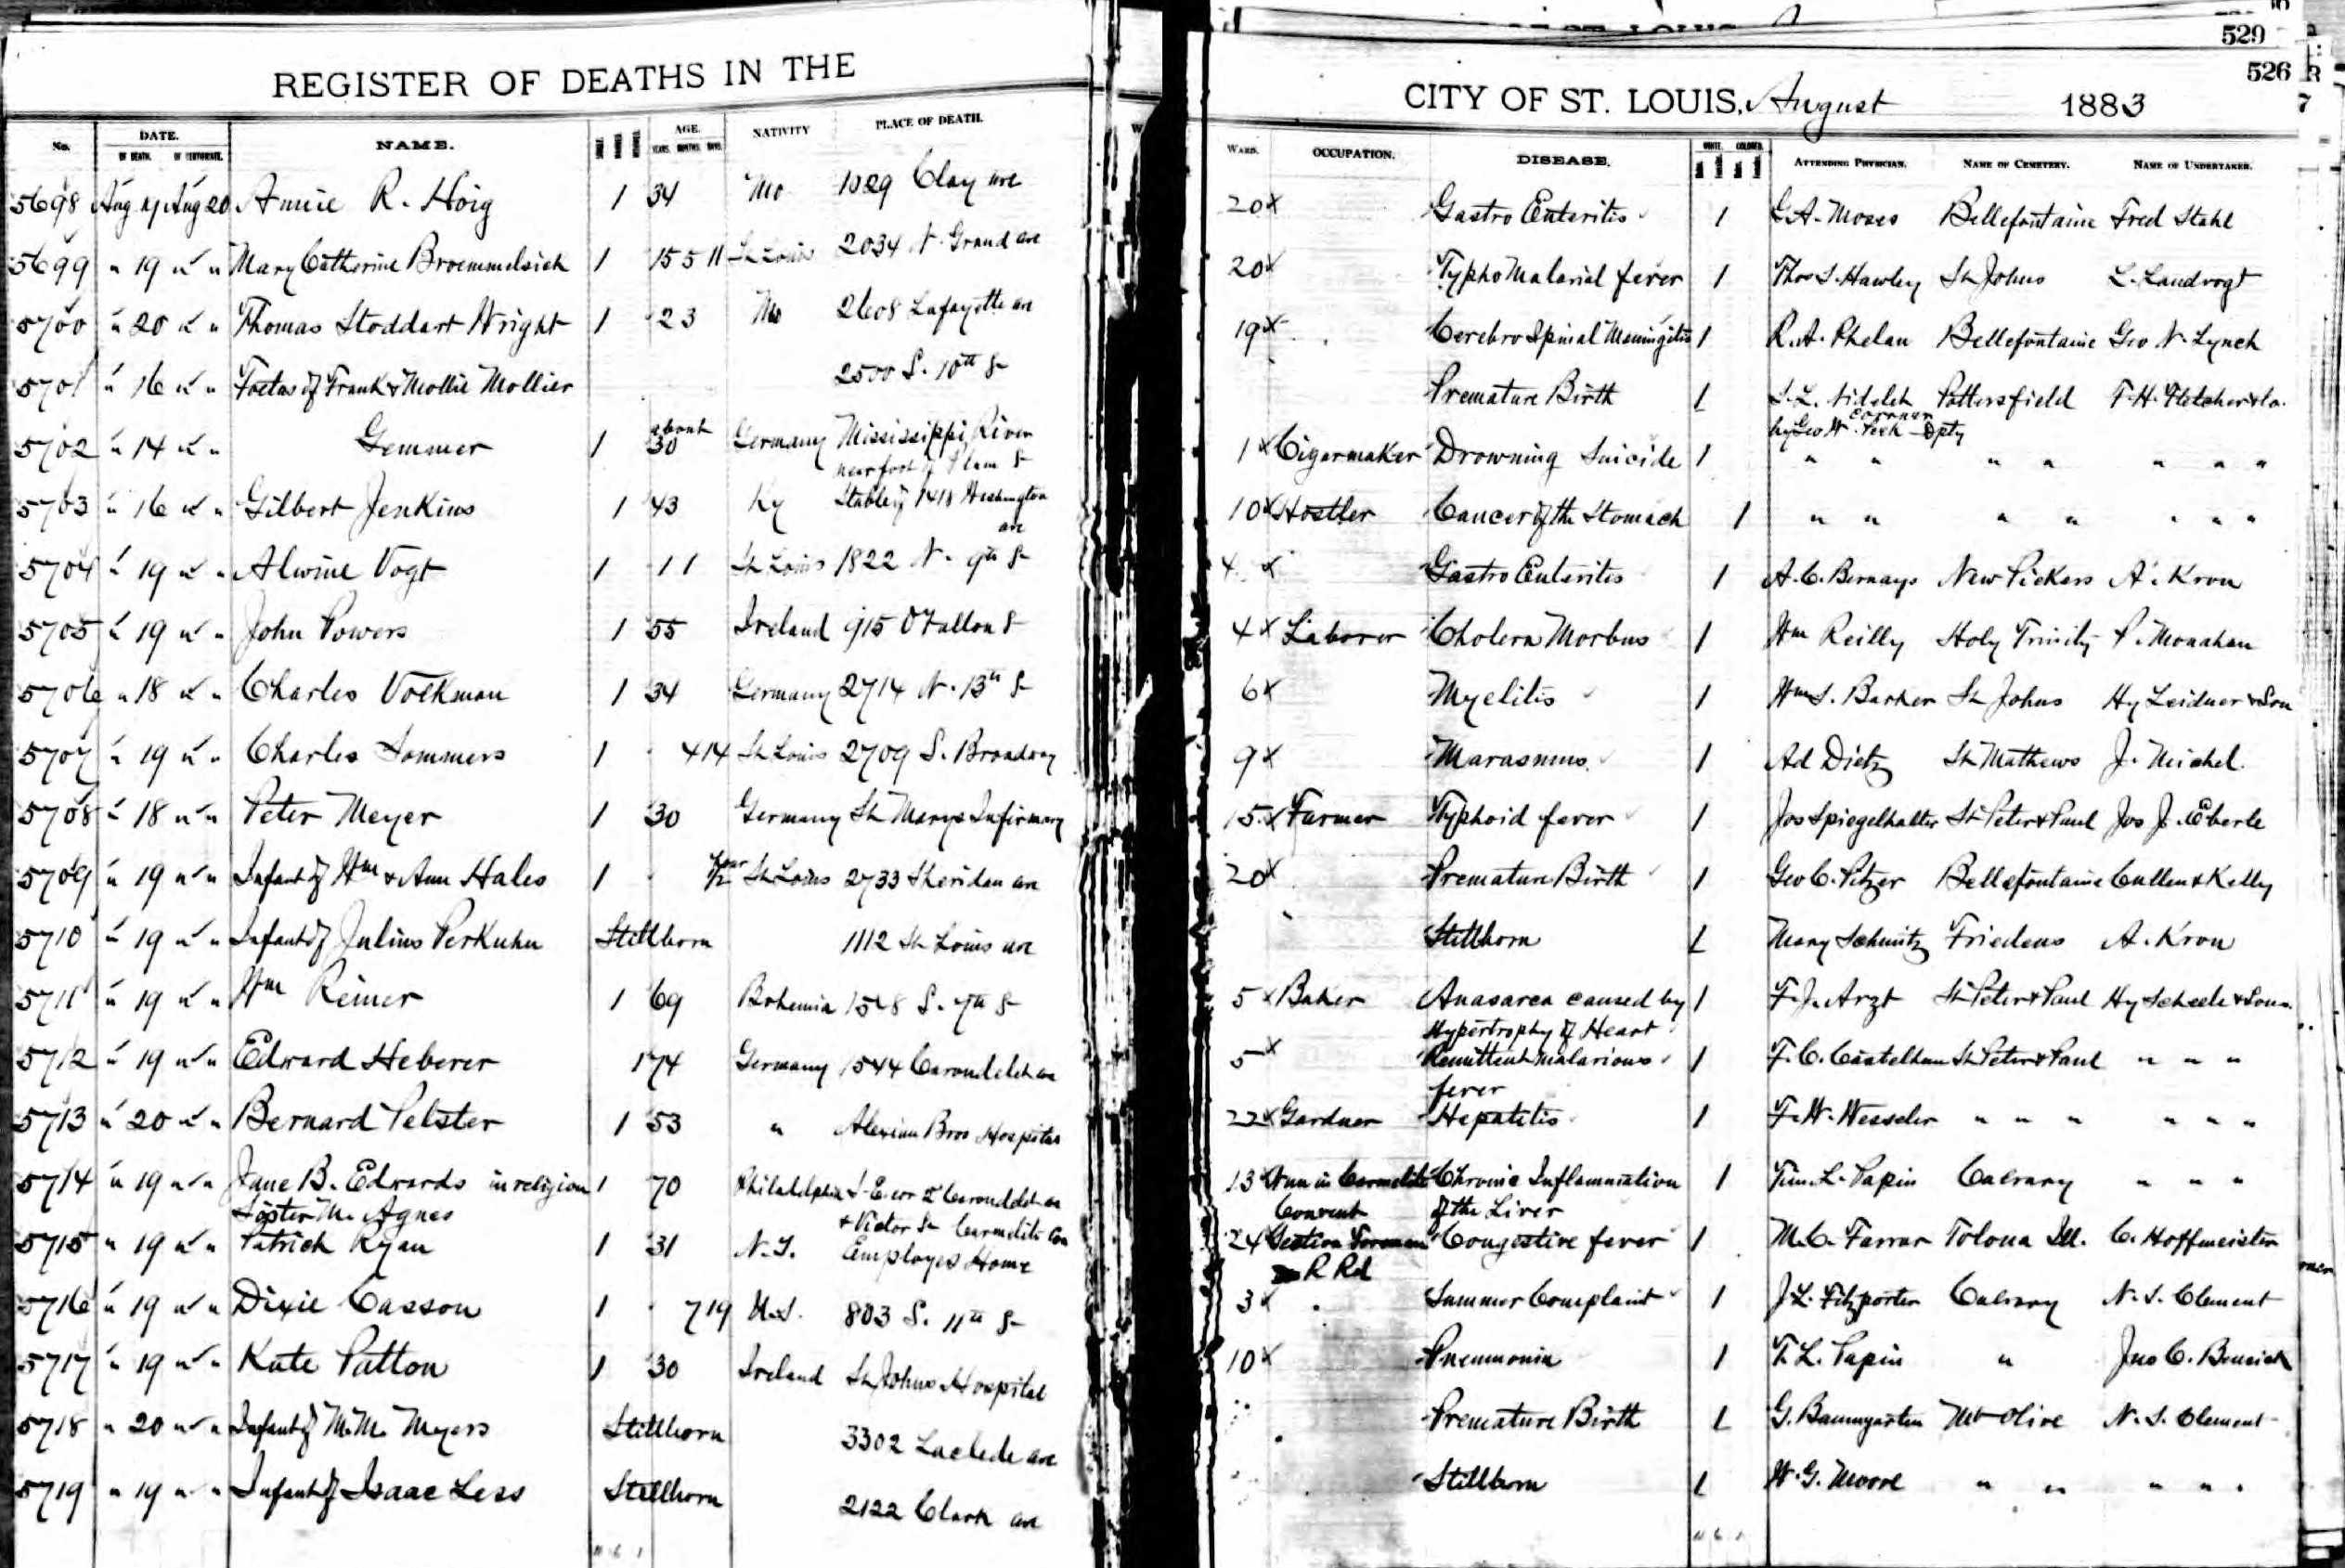 529
526
REGISTER OF DEATHS IN THE
CITY OF ST. LOUIS, August 1883
No. DATE. OF DEATH. OF CERTIFICATE. NAME. AGE. YEARS. MONTHS. DAYS. NATIVITY PLACE OF DEATH.
WARD. OCCUPATION. DISEASE. WHITE. COLORED. ATTENDING PHYSICIAN. NAME OF CEMETERY. NAME OF UNDERTAKER.
5698 Aug 19 Aug 20 Annie R. Hoig 1 34 Mo 1029 Clay ave 20 x Gastro Enteritis 1 G.A. Moses Bellefontaine Fred Stahl
5699 " 19 " " Mary Catherine Broemmelsiek 1 15 5 11 St Louis 2034 N. Grand ave 20 x Typho Malarial fever 1 Thos S. Hawley St Johns L. Landvogt
5700 " 20 " " Thomas Stoddart Wright 1 23 Mo 2608 Lafayette ave 19 x Cerebro Spinal Meningitis 1 R.A. Phelan Bellefontaine Geo N. Lynch
5701 " 16 " " Foetus of Frank & Mollie Mollier 2500 S. 10th St Premature Birth 1 S.L. Nidelet Pottersfield T.H. Fletcher & Co.
Coroner
by Geo W. Peck Dpty
5702 " 14 " " Gemmer 1 about 30 Germany Mississippi River 1 x Cigarmaker Drowning Suicide 1 " " " " " " "
near foot of Plum St
5703 " 16 " " Gilbert Jenkins 1 43 Ky Stable of 1418 Washington 10 x Hostler Cancer of the Stomach 1 " " " " " " "
ave
5704 " 19 " " Alwine Vogt 1 11 St Louis 1822 N. 9th St 4 x Gastro Enteritis 1 A.C. Bernays New Pickers A. Kron
5705 " 19 " " John Powers 1 55 Ireland 915 O'Fallon St 4 x Laborer Cholera Morbus 1 Wm Reilly Holy Trinity P. Monahan
5706 " 18 " " Charles Volkman 1 34 Germany 2714 N. 13th St 6 x Myelitis 1 Wm S. Barker St Johns Hy Leidner & Son
5707 " 19 " " Charles Sommers 1 4 14 St Louis 2709 S. Broadway 9 x Marasmus. 1 Ad Dietz St Mathews J.
5708 " 18 " " Peter Meyer 1 30 Germany St Marys Infirmary 15 x Farmer Typhoid fever 1 Jos Spiegelhalter St Peter & Paul Jos J. Eberle
5709 " 19 " " Infant of Wm & Ann Hales 1 1/2 hour St Louis 2733 Sheridan ave 20 x Premature Birth 1 Geo C. Pitzer Bellefontaine Cullen & Kelly
5710 " 19 " " Infant of Julius Perkuhn Stillborn 1112 St Louis ave Stillborn 1 Mary Schmitz Friedens A. Kron
5711 " 19 " " Wm Reiner 1 69 Bohemia 1518 S. 7th St 5 x Baker Anasarca caused by 1 F.J. Arzt St Peter & Paul Hy Scheele & Sons.
Hypertrophy of Heart
5712 " 19 " " Edward Heberer 1 74 Germany 1544 Carondelet ave 5 x Remittent malarious 1 F.C. Castelhun St Peter & Paul " " "
fever
5713 " 20 " " Bernard Pelster 1 53 " Alexian Bros Hospital 22 x Gardner Hepatitis 1 F.W. Wesseler " " " " " "
5714 " 19 " " Jane B. Edwards in religion 1 70 Philadelphia S.E. cor 2d Carondelet ave 13 Nun in Carmelite Chronic Inflammation 1 Tim. L. Papin Calvary " " "
Sister M. Agnes & Victor St Carmelite Con Convent of the Liver
5715 " 19 " " Patrick Ryan 1 31 N.Y. Employes Home 24 Section Foreman Congestive fever 1 M.C. Farrar Tolona Ill. C. Hoffmeister
R Rd
5716 " 19 " " Dixie Casson 1 7 19 U.S. 803 S. 11th St 3 x Summer Complaint 1 J.L. Fitzporter Calvary N.S. Clement
5717 " 19 " " Kate Patton 1 30 Ireland St Johns Hospital 10 x Pneumonia 1 T.L. Papin " Jno C.
5718 " 20 " " Infant of M.M. Myers Stillborn 3302 Laclede ave Premature Birth 1 G. Baumgarten Mt Olive N.S. Clement
5719 " 19 " " Infant of Isaac Less Stillborn 2122 Clark ave Stillborn 1 W.G. Moore " " " " "